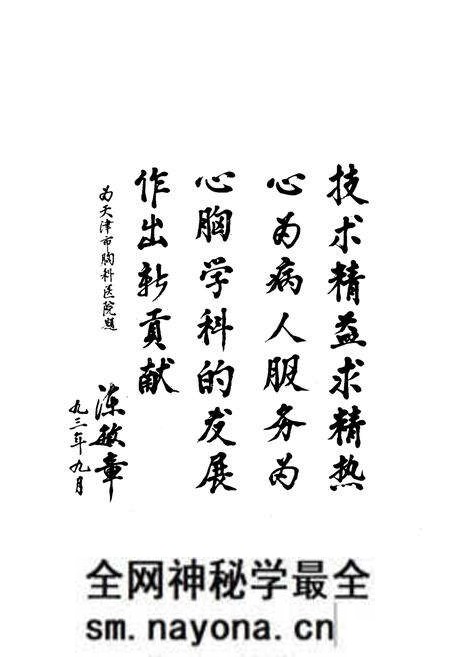 技术精益求精热
心为病人服务为
心胸学科的发展
作出新贡献
为天津市胸科医院题
陈敏章
九三年九月
全网神秘学最全
sm.nayona.cn